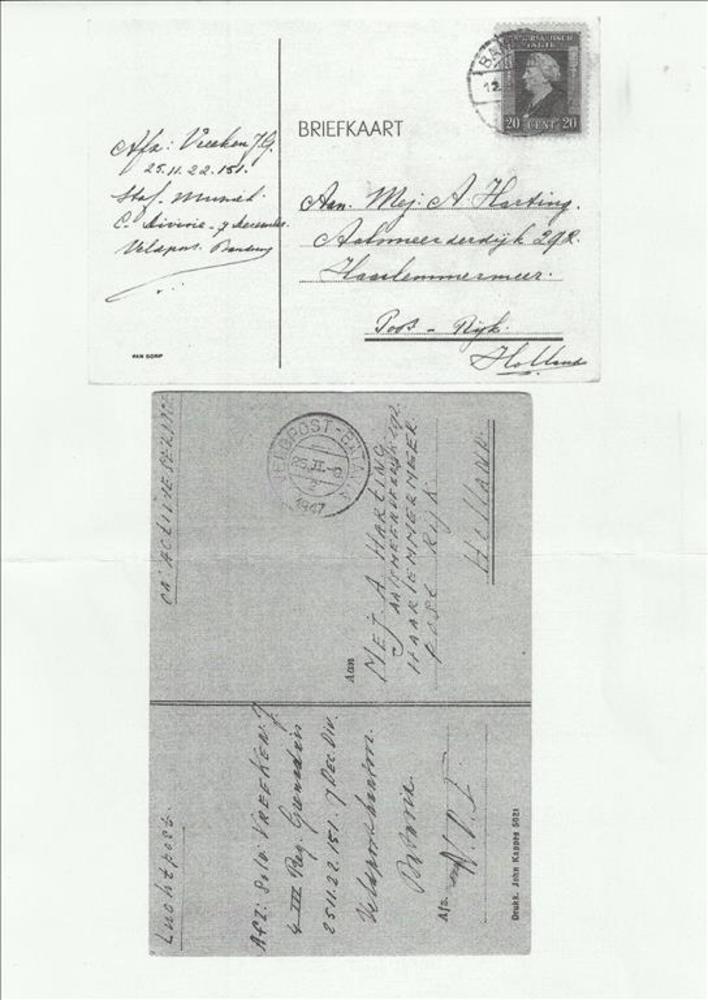 BRIEFKAART
NEDERLANDSCH
INDIE
20 CENT 20
BAN
12.
Afz: Vreeken J.G.
25.11.22.151.
Staf. Munich.
C. Divisie - 7 December
Veldpost. Bandung
VAN DORP
Aan. Mej. A. Harting.
Aalsmeerderdijk 292.
Haarlemmermeer.
Post - Rijk.
Holland
ON ACTIVE SERVICE
VELDPOST-BATAVIA
1947
2
Aan
MEJ. A. HARTING
AALSMEERDERDIJK 292.
HAARLEMMERMEER
POST RIJK
HOLLAND
Luchtpost.
AFZ: Sold. VREEKEN. J.
4 III Reg. Grenadiers
2511.22.151. 7 DEC. DIV.
Veldpostkantoor.
Batavia.
Afz. N.O.I.
Drukk. John Kappee 5021